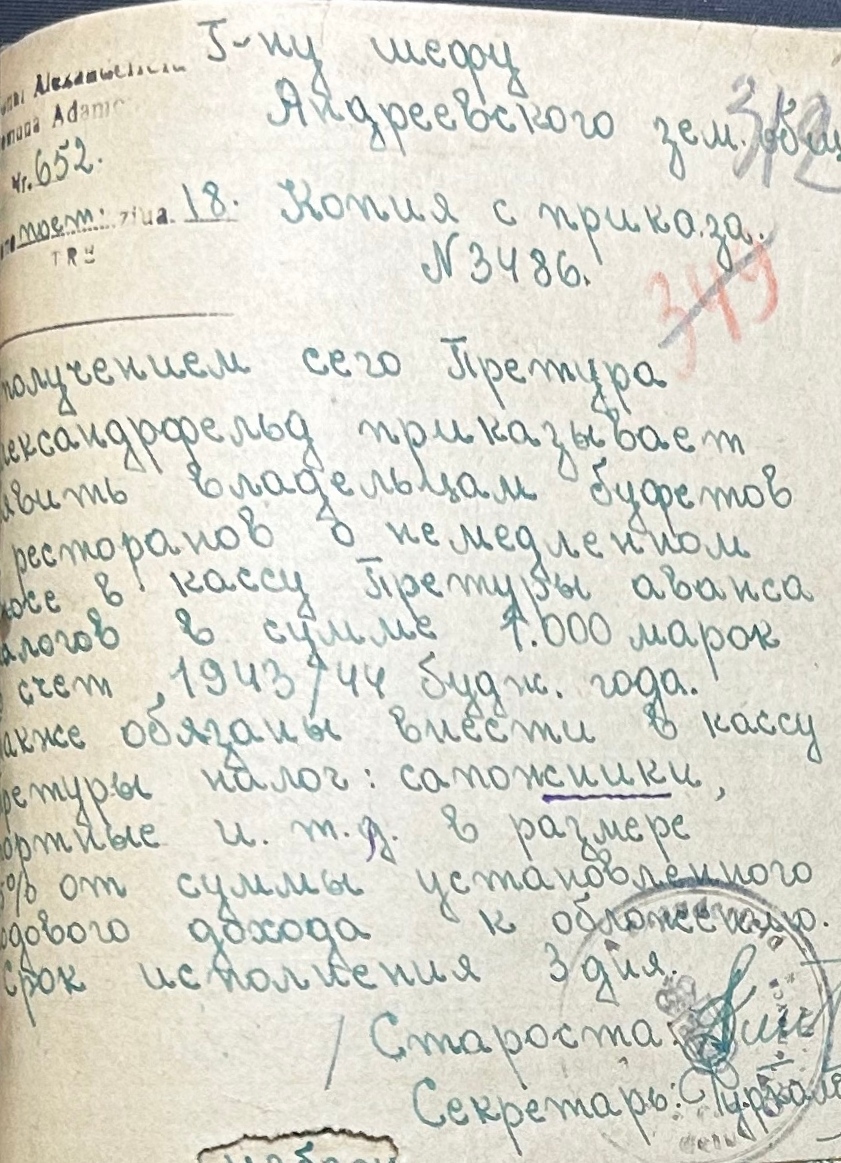 Г-ну шефу
Андреевского зем. общ
Adam
Nr. 652.
пост: ziua. 18.
312
Копия с приказа.
N 3486.
349
получением сего Претура
лександрфельд приказывает
явить владельцам буфетов
ресторанов о немедленном
носе в кассу Претуры аванса
алогов в сумме 1.000 марок
счет 1943/44 будж. года.
акже обязаны внести в кассу
ретуры налог: сапожники,
ортные и. т.д. в размере
5% от суммы установленного
одового дохода к обложению.
Срок исполнения 3 дня.
Староста:
Секретарь: